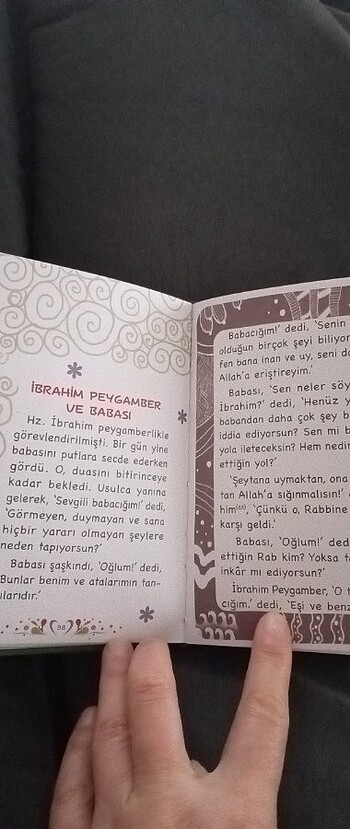 İBRAHİM PEYGAMBER
VE BABASI
Hz. İbrahim peygamberlikle
görevlendirilmişti. Bir gün yine
babasını putlara secde ederken
gördü. O, duasını bitirinceye
kadar bekledi. Usulca yanına
gelerek, 'Sevgili babacığım!' dedi,
'Görmeyen, duymayan ve sana
hiçbir yararı olmayan şeylere
neden tapıyorsun?'
Babası şaşkındı, 'Oğlum!' dedi,
'Bunlar benim ve atalarımın tan-
rılarıdır.'
98
Babacığım!' dedi, 'Senin
olduğun birçok şeyi biliyor
fen bana inan ve uy, seni d
Allah'a eriştireyim.'
Babası, 'Sen neler söy
İbrahim?' dedi, 'Henüz y
babandan daha çok şey b
iddia ediyorsun? Sen mi b
yola ileteceksin? Hem nedir
ettiğin yol?'
'Şeytana uymaktan, ona
tan Allah'a sığınmalısın!'
him(as), 'Çünkü o, Rabbine
karşı geldi.'
Babası, 'Oğlum!' ded
ettiğin Rab kim? Yoksa t
inkâr mı ediyorsun?'
İbrahim Peygamber, 'O
cığım.' dedi, 'Eşi ve benz